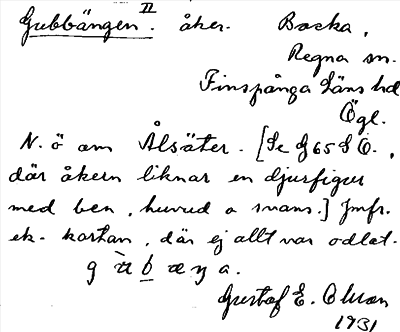 Gubbängen. II åker. Backa,
Regna sn.
Finspånga läns hd
Ögl.
N. ö om Ålsäter. [Se J 65 S Ö.,
där åkern liknar en djurfigur
med ben, huvud o svans.] Jmfr.
ek. kartan, där ej allt var odlat.
Gustaf E. Olsson
1931